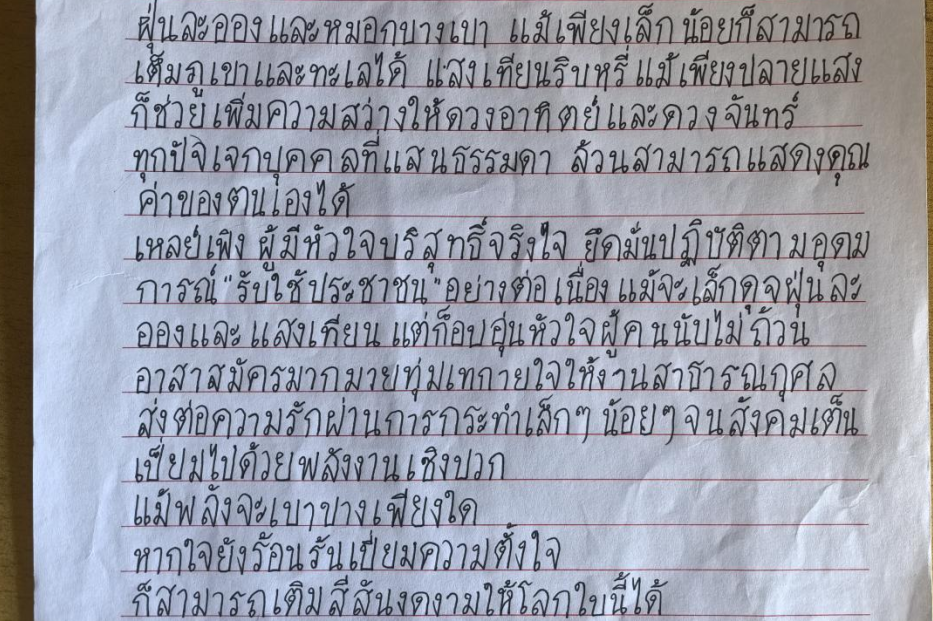 ฝุ่นละอองและหมอกบางเบา แม้เพียงเล็กน้อยก็สามารถ
เต็มภูเขาและทะเลได้ แสงเทียนริบหรี่ แม้เพียงปลายแสง
ก็ช่วยเพิ่มความสว่างให้ดวงอาทิตย์และดวงจันทร์
ทุกปัจเจกบุคคลที่แสนธรรมดา ล้วนสามารถแสดงคุณ
ค่าของตนเองได้
เหลย์เฟิง ผู้มีหัวใจบริสุทธิ์จริงใจ ยึดมั่นปฏิบัติตามอุดม
การณ์"รับใช้ประชาชน"อย่างต่อเนื่อง แม้จะเล็กดุจฝุ่นละ
อองและแสงเทียน แต่ก็อบอุ่นหัวใจผู้คนนับไม่ถ้วน
อาสาสมัครมากมายทุ่มเทกายใจให้งานสาธารณกุศล
ส่งต่อความรักผ่านการกระทำเล็กๆ น้อยๆ จนสังคมเต็น
เปี่ยมไปด้วยพลังงานเชิงบวก
แม้พลังจะเบาบางเพียงใด
หากใจยังร้อนรันเปี่ยมความตั้งใจ
ก็สามารถเติมสีสันงดงามให้โลกใบนี้ได้